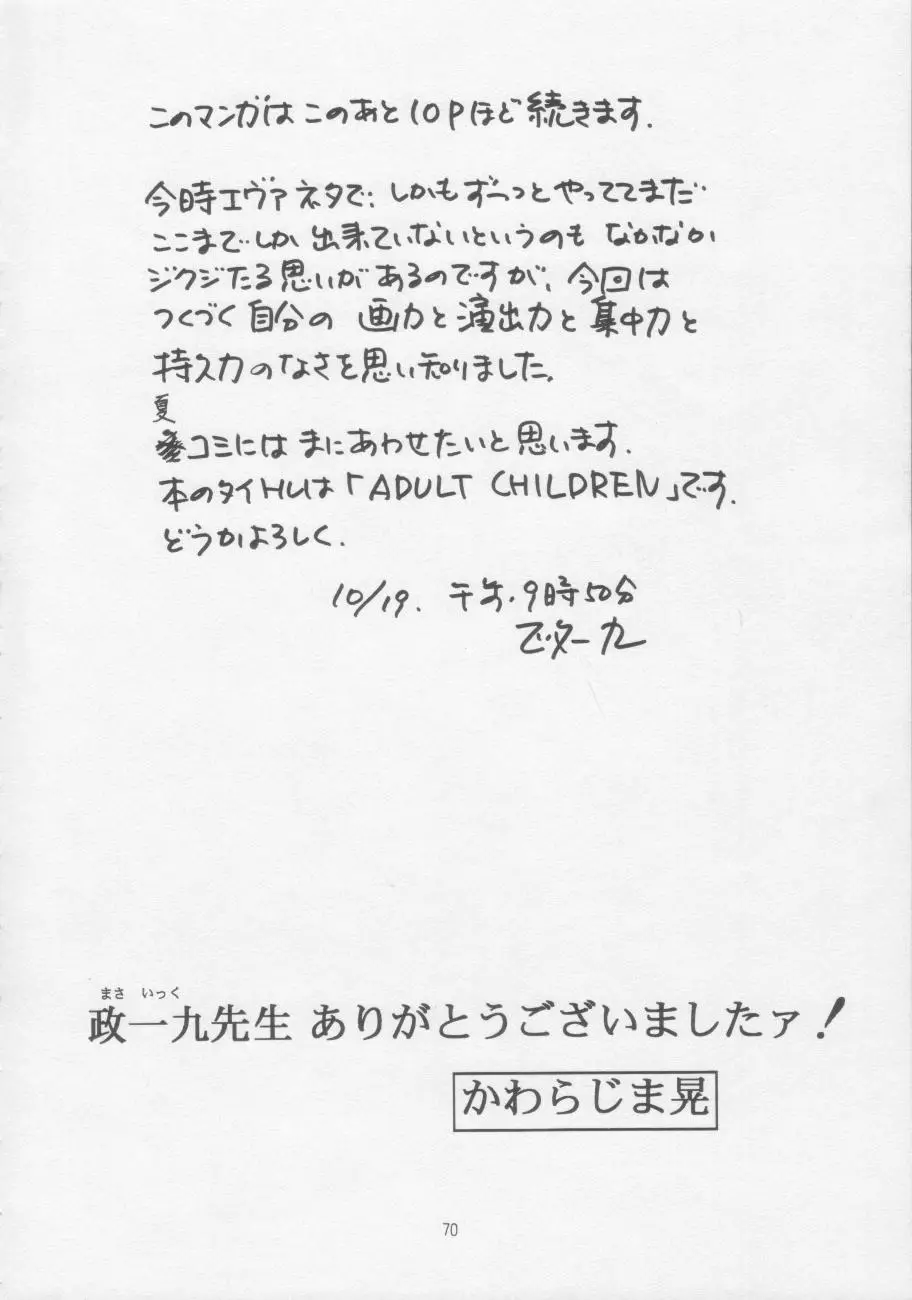 このマンガはこのあと10Pほど続きます.
今時エヴァネタで、しかもずーっとやっててまだ
ここまでしか出来ていないというのもなかなか
ジクジたる思いがあるのですが、今回は
つくづく自分の画力と演出力と集中力と
持久力のなさを思い知りました。
夏
コミにはまにあわせたいと思います.
本のタイトルは「ADULT CHILDREN」です.
どうかよろしく.
10/19. 午前.9時50分
政一九
まさ いっく
政一九先生 ありがとうございましたァ！
かわらじま晃
70